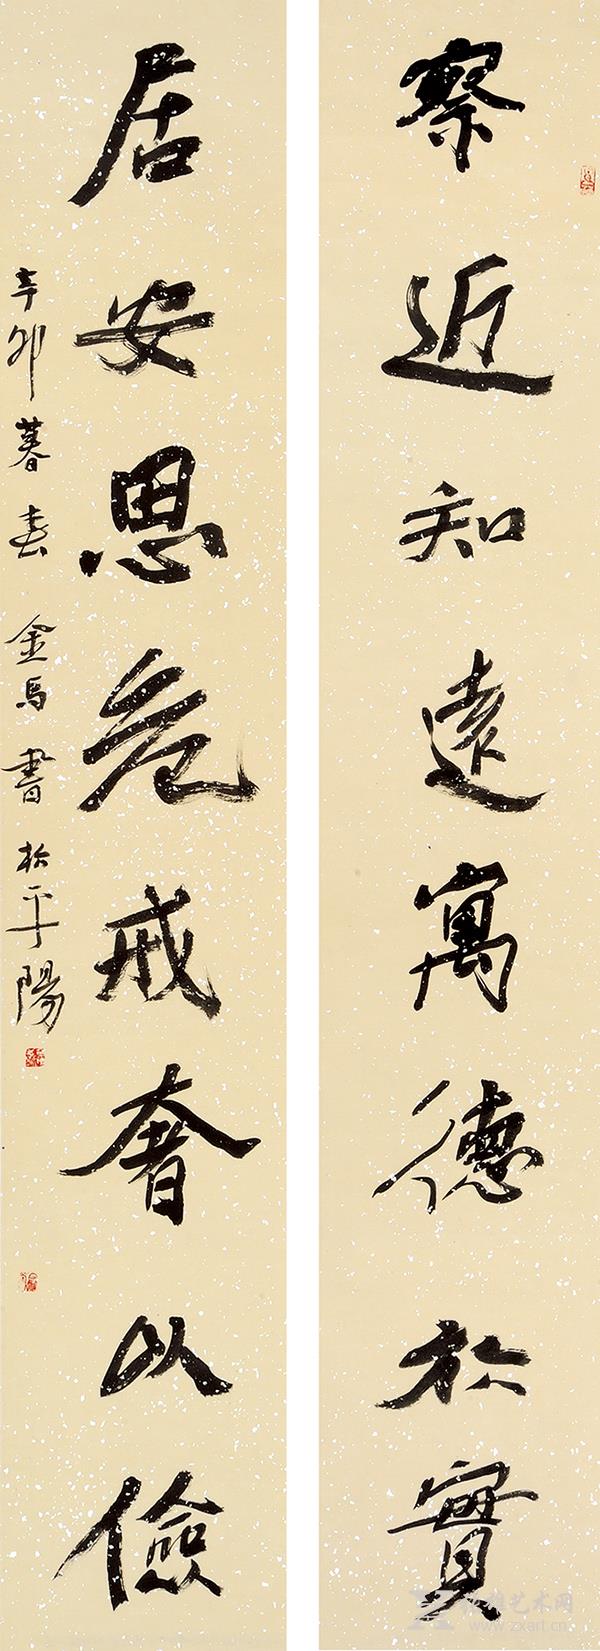 察近知遠寓德於實
居安思危戒奢以儉
辛卯暮春金馬書於平陽
艺术网
www.zxart.cn